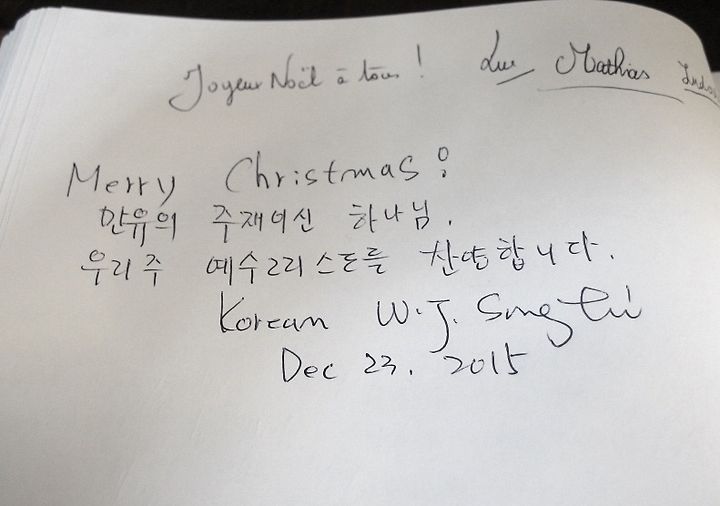 Joyeux Noël à tous ! Luc Mathias
Merry Christmas!
만유의 주재이신 하나님.
우리 주 예수그리스도를 찬양합니다.
Korean W.J. Sung
Dec 23. 2015